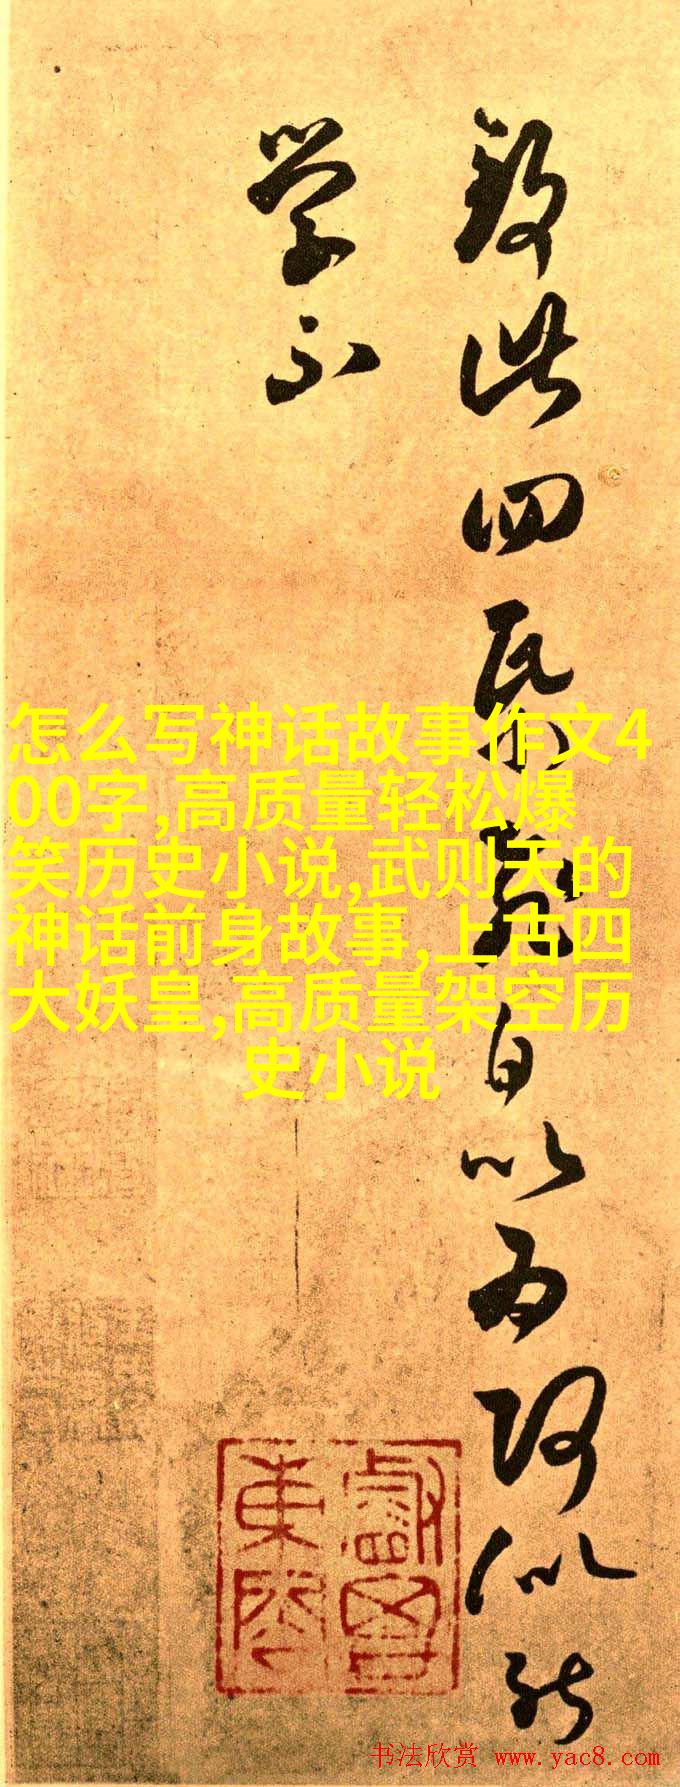 此四自以为似能
学不
怎么写神话故事作文4
00字,高质量轻松爆
笑历史小说,武则天的
神话前身故事,上古四
大妖皇,高质量架空历
史小说
书法欣赏 www.yac8.com